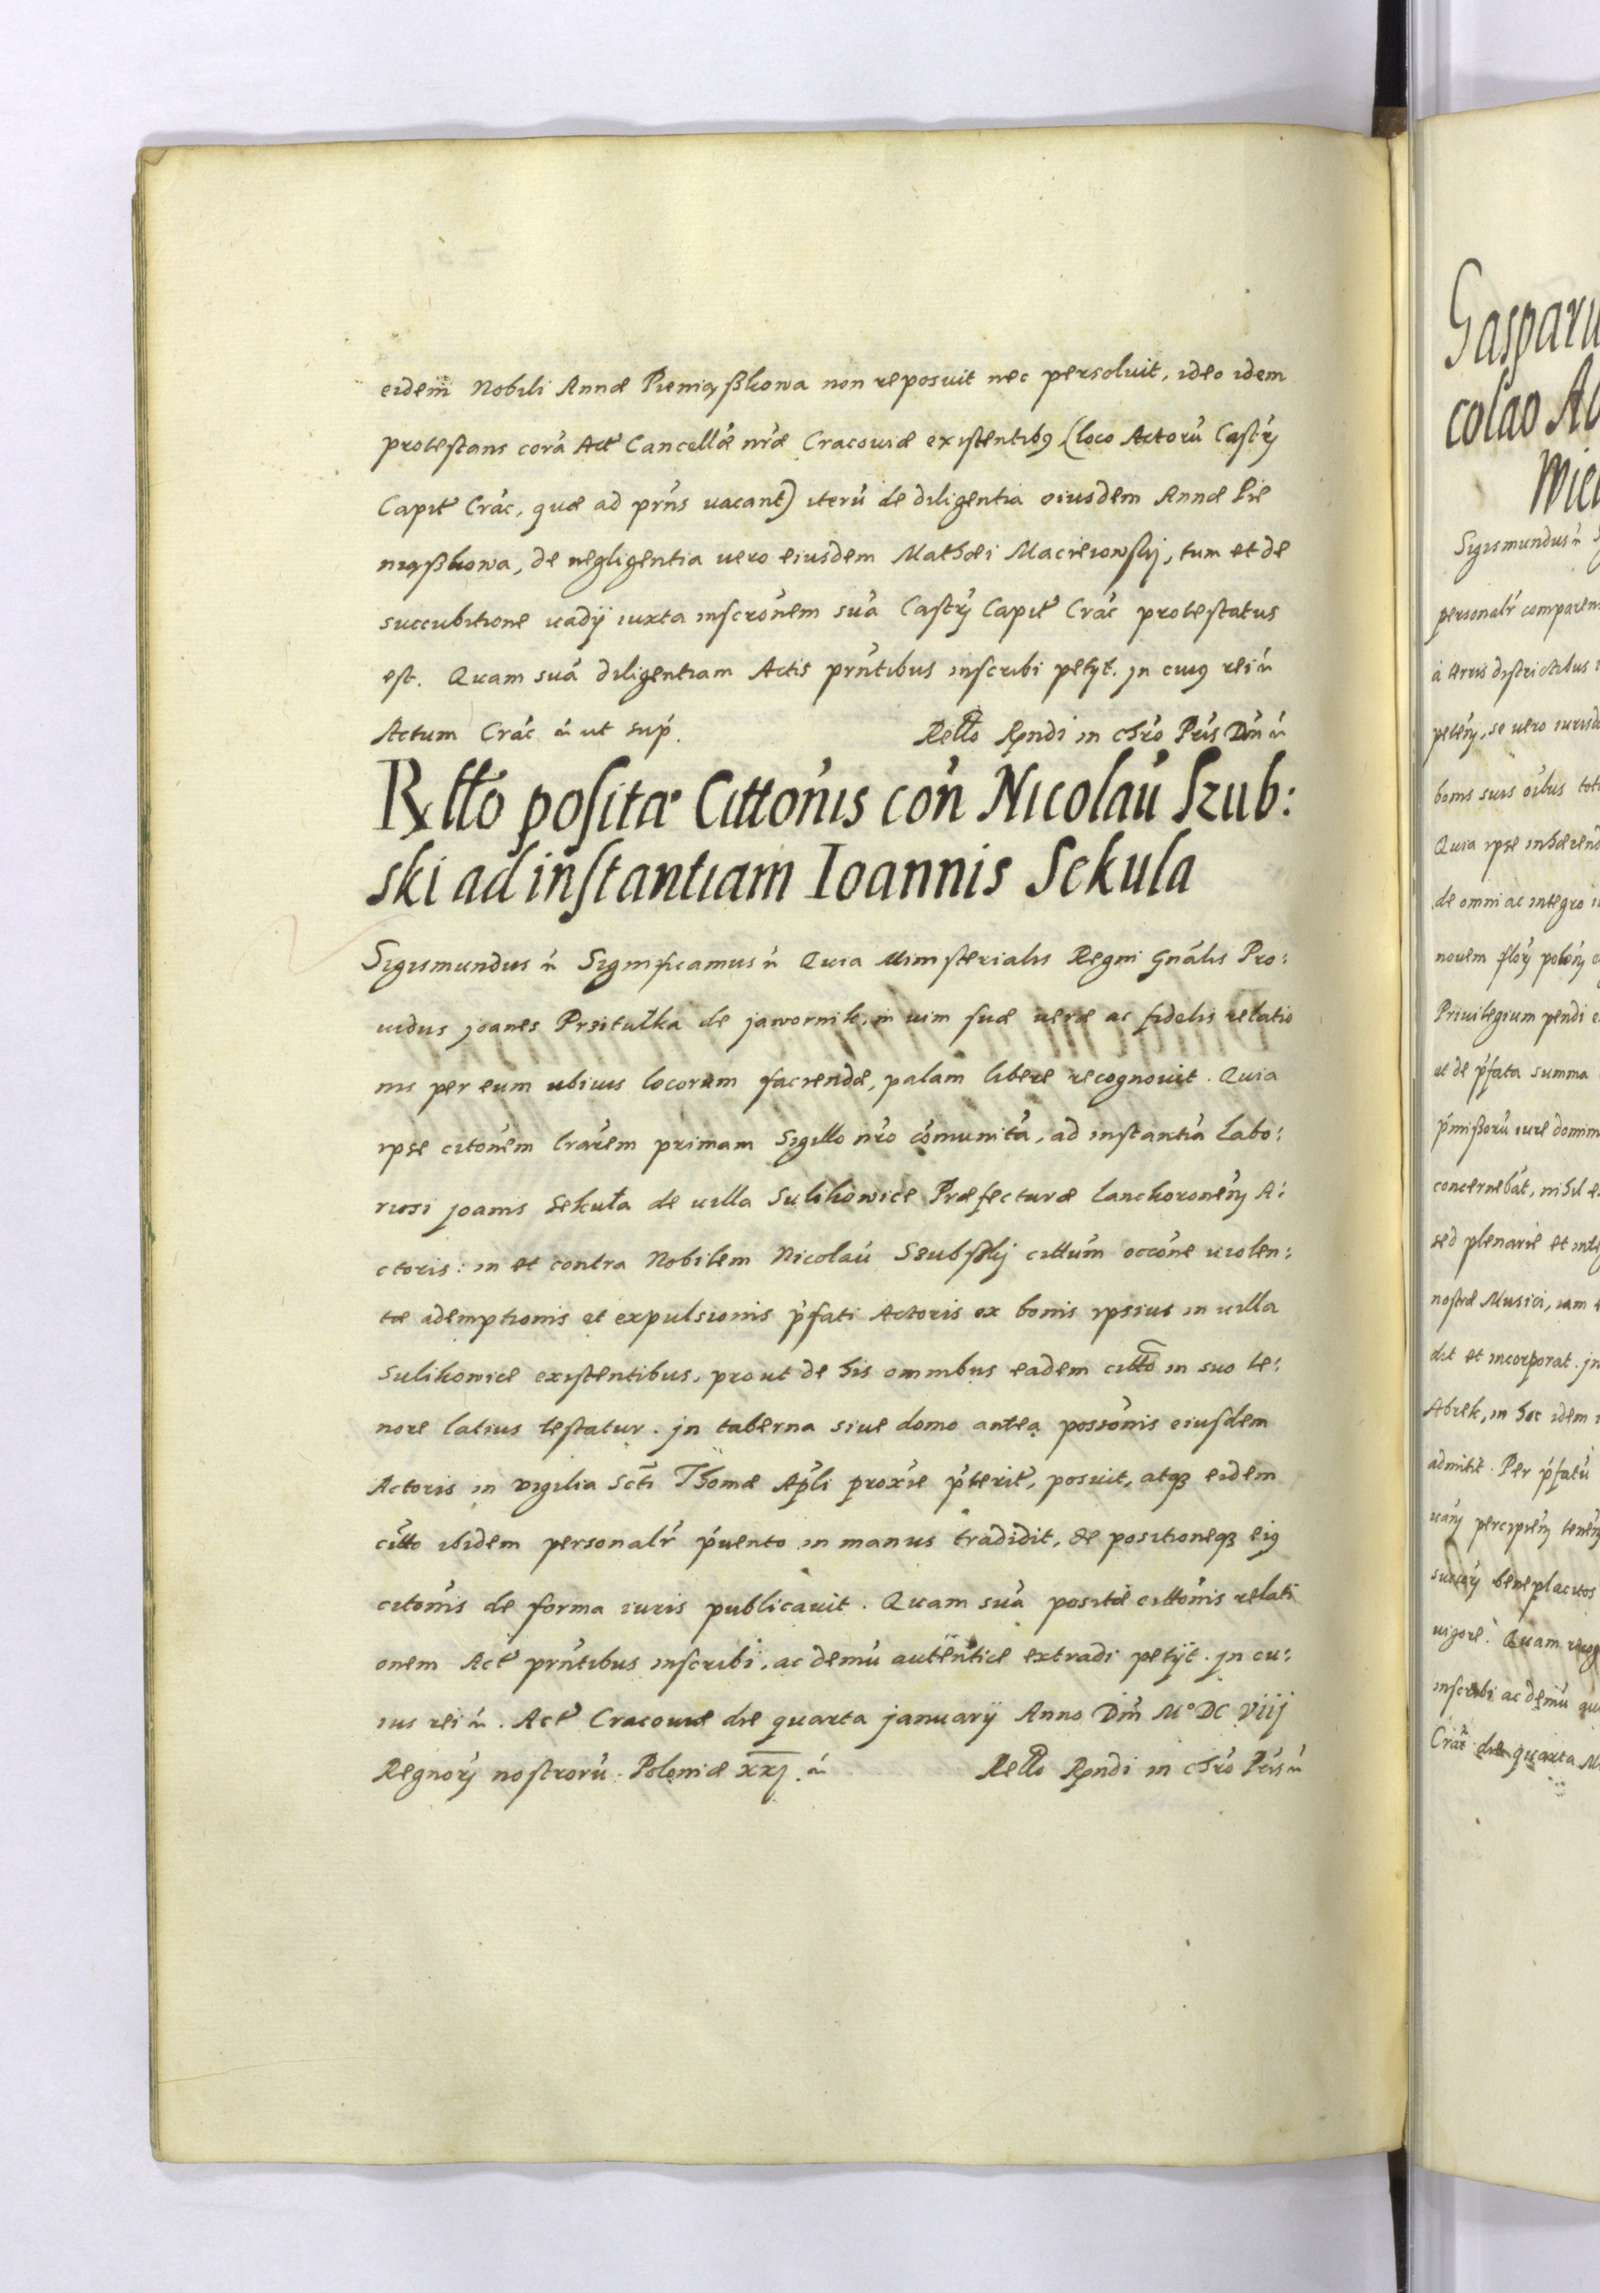 eidem Nobili Annæ Pieniąßkowa non reposuit nec persoluit, ideo idem
protestans corã Act̃ Cancellæ nr̃æ Cracouiæ existentibꝰ (loco Actorũ Castr̃
Capit̃ Crac̃, quæ ad pr̃ns uacant) iterũ de diligentia eiusdem Annæ Pie
niąßkowa, de negligentia uero eiusdem Mathæi Macieiowskij, tum et de
succubitione uadij iuxta inscrõnem suã Castr̃ Capit̃ Crac̃ protestatus
est. Quam suã diligentiam Actis pr̃ntibus inscribi petyt. jn cuiꝰ rei ñ
Actum Crac̃ ñ ut sup̃.
Rell̃o Rṕndi in chr̃o Pr̃is Dñi ñ
Rllõ positæ Cittõnis cõn Nicolaũ Szub:
ski ad instantiam Ioannis Sekula
Sigismundus ñ Significamus ñ Quia Ministerialis Regni Gnãlis Pro:
uidus joanes Przitułka de jawornik, in uim suæ ueræ ac fidelis relatio
nis per eum ubiuis locorum faciendæ, palam libere recognouit. Quia
ipse citõnem lr̃arem primam Sigillo nr̃o cõmunitã, ad instantiã Labo:
riosi joanis Sekuła de uilla Sulikowice Præfecturæ Lanckoronen̄ A:
ctoris: in et contra Nobilem Nicolaũ Szubskij cittum̃ occõne uiolen:
tæ ademptionis et expulsionis p̃fati Actoris ex bonis ipsius in uilla
Sulikowice existentibus, prout de his omnibus eadem citt̃o in suo te:
nore latius testatur. jn taberna siue domo antea possiõnis eiusdem
Actoris in vigilia Sct̃i Thomæ Ap̃li proxĩe p̃terit̃, posuit, atqꝫ eidem
citt̃o ibidem personalr̃ p̃uento in manus tradidit, de positioneqꝫ eiꝰ
citõnis de forma iuris publicauit. Quam suã positæ cittõnis relati
onem Act̃ pr̃ntibus inscribi, ac demũ autẽntice extradi petijt. jn cu:
ius rei ñ. Act̃ Cracouiæ die quarta januarij Anno Dñi M° DC Viij
Regnorȷ̃ nostrorũ. Poloniæ xxj. ñ
Rell̃o Rṕndi in chr̃o Pr̃is ñ
colao
Sigismundus ñ
à terris districtibus
Quia ipse inhærend
de omni ac integro
et de p̃fata summa
sed plenarie et
nostræ Musici, iam
dit et incorporat. jn
Abrek, in hoc idem
admitit. Per p̃fatũ
beneplacitos
uigore. Quam
inscribi ac demũ
die quarta